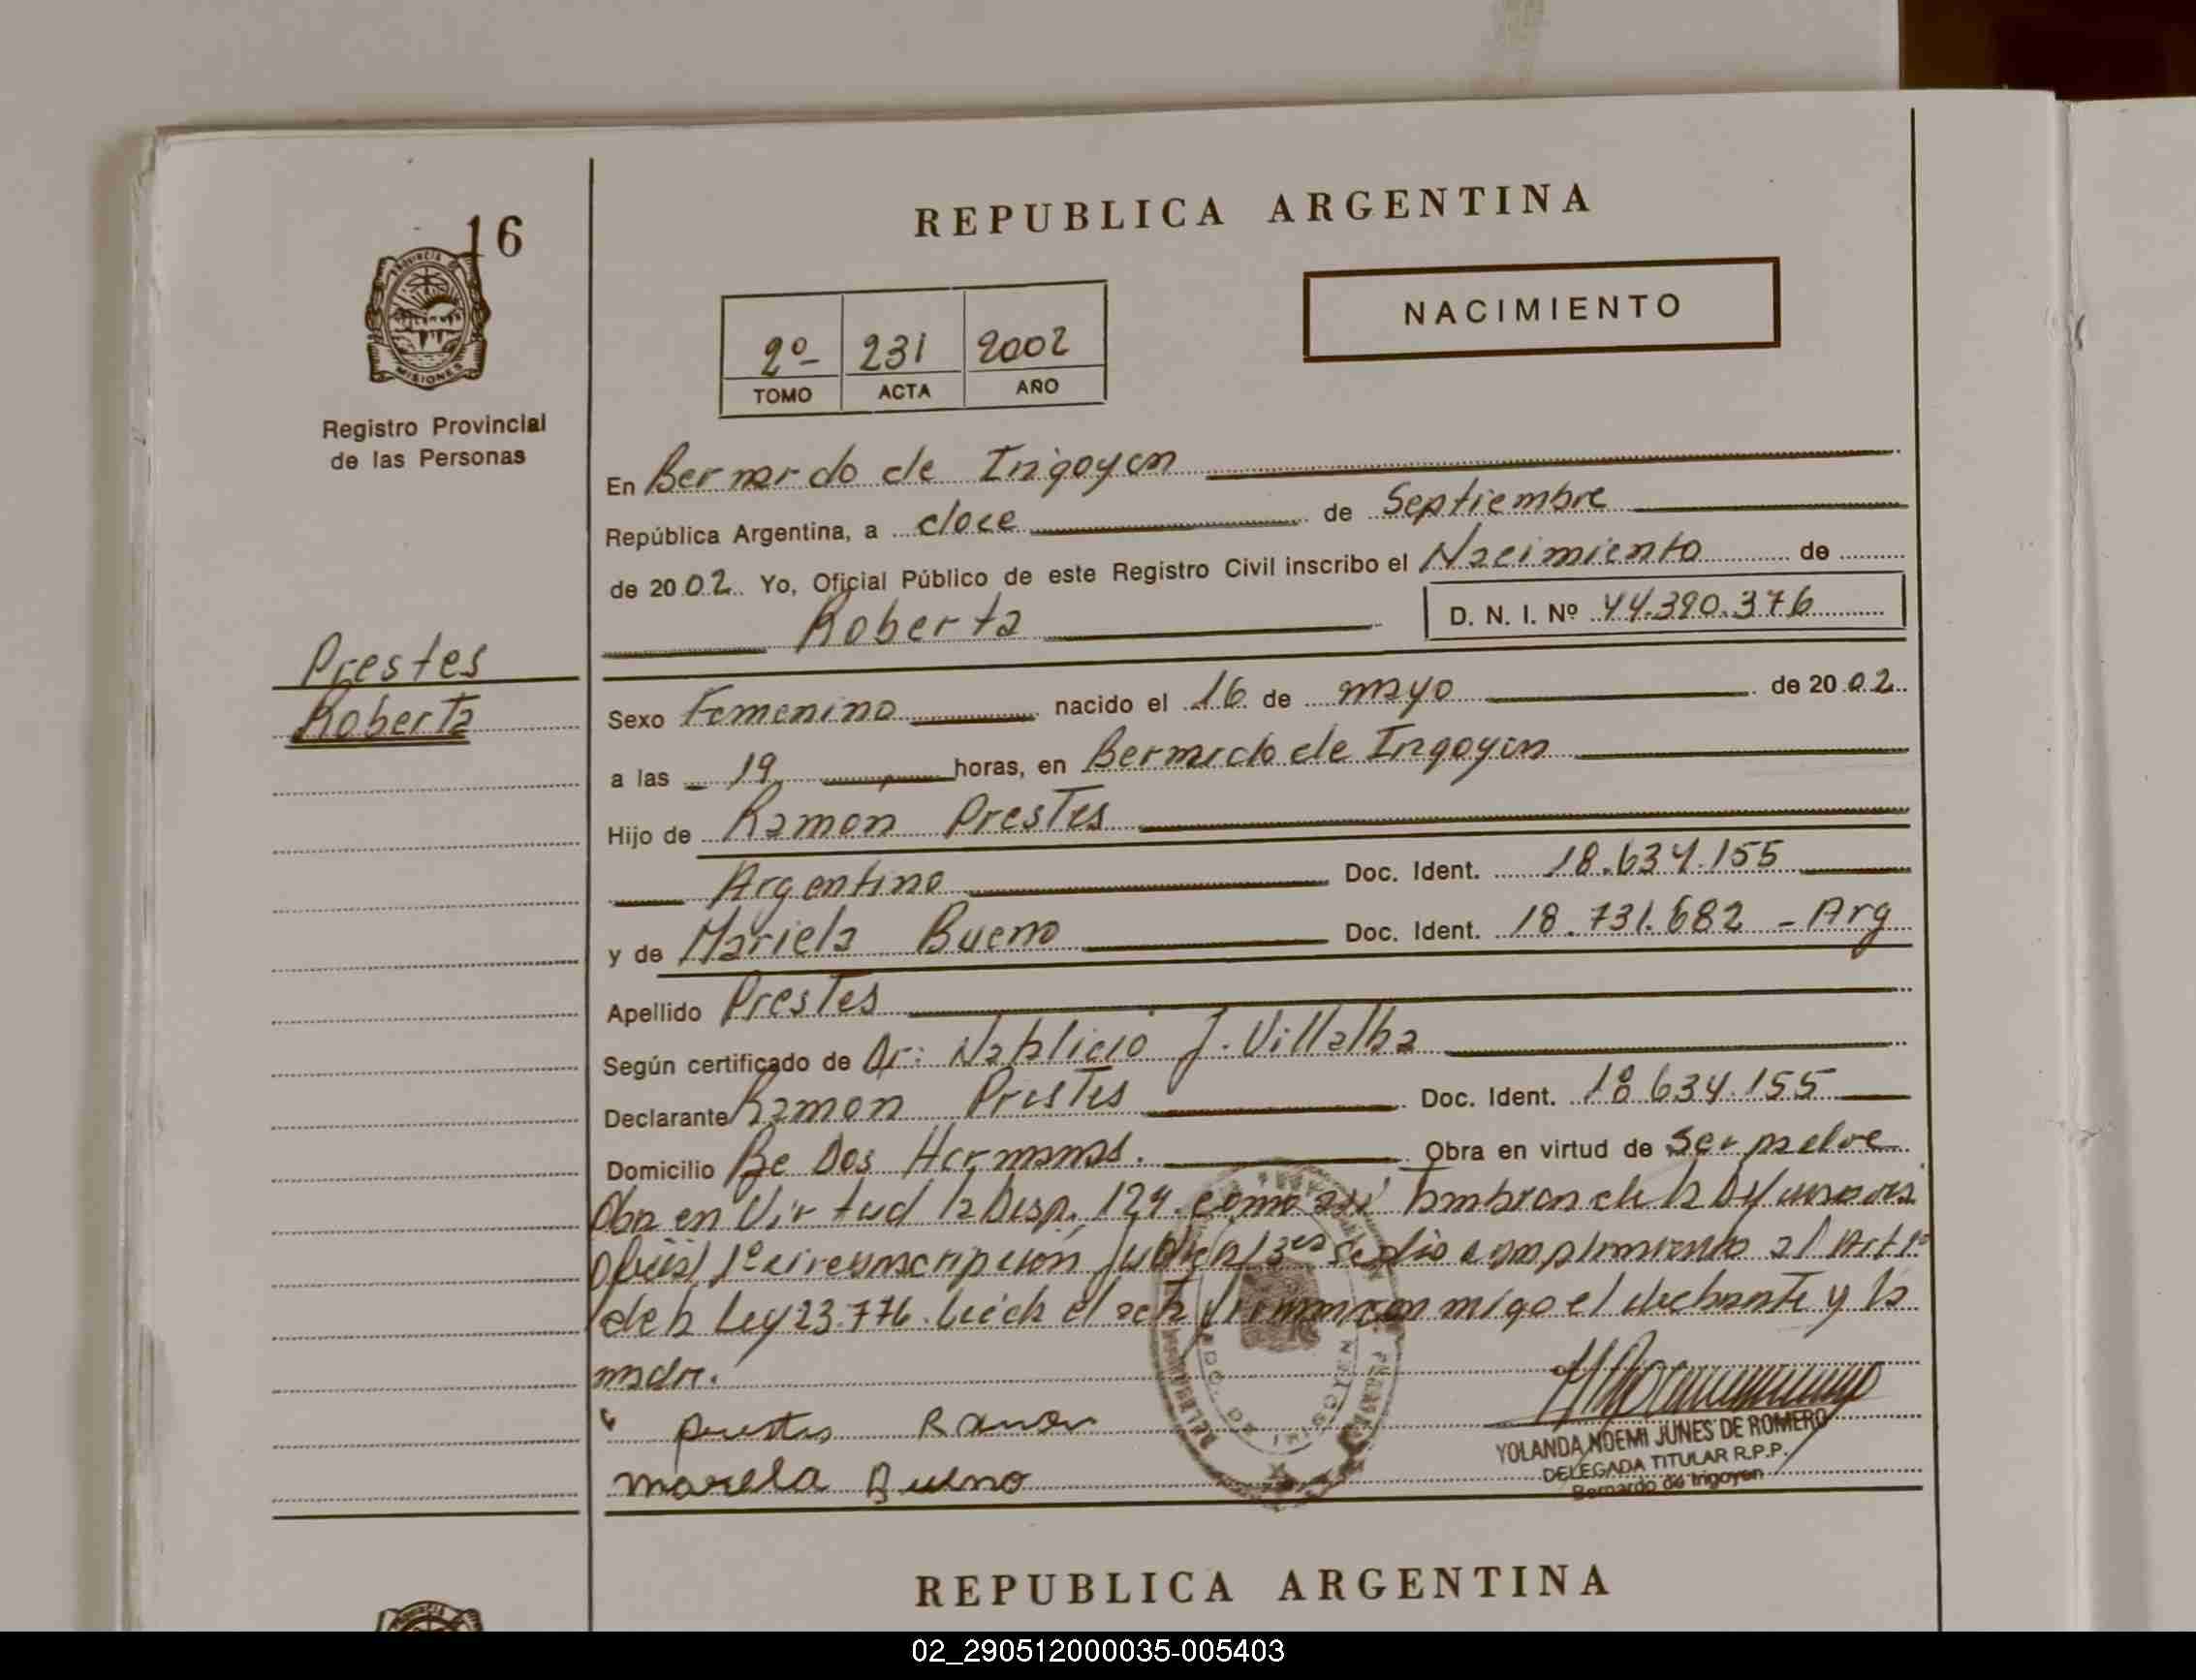 16
PROVINCIA DE
MISIONES
Registro Provincial
de las Personas
Prestes
Roberta
REPUBLICA ARGENTINA
NACIMIENTO
2º 231 2002
TOMO ACTA AÑO
En Bernardo de Irigoyen
República Argentina, a doce de Septiembre
de 2002. Yo, Oficial Público de este Registro Civil inscribo el Nacimiento de
Roberta D. N. I. Nº 44.390.376
Sexo Femenino nacido el 16 de mayo de 2002
a las 19 horas, en Bernardo de Irigoyen
Hijo de Ramon Prestes
Argentino Doc. Ident. 18.634.155
y de Mariela Bueno Doc. Ident. 18.731.682 - Arg
Apellido Prestes
Según certificado de Dr: J. Villalba
Declarante Ramon Prestes Doc. Ident. 18 634.155
Domicilio Dos Hermanas. Obra en virtud de Ser padre
Obra en Virtud la Disp. 124 como así tambien de la
1º circunscripción Judicial se dio cumplimiento al Art
de la Ley 23.776. el acta firman conmigo el y la
madre.
Prestes Ramon
Mariela Bueno
YOLANDA NOEMI JUNES DE ROMERO
DELEGADA TITULAR R.P.P.
Bernardo de Irigoyen
REPUBLICA ARGENTINA
PROVINCIA
02_290512000035-005403